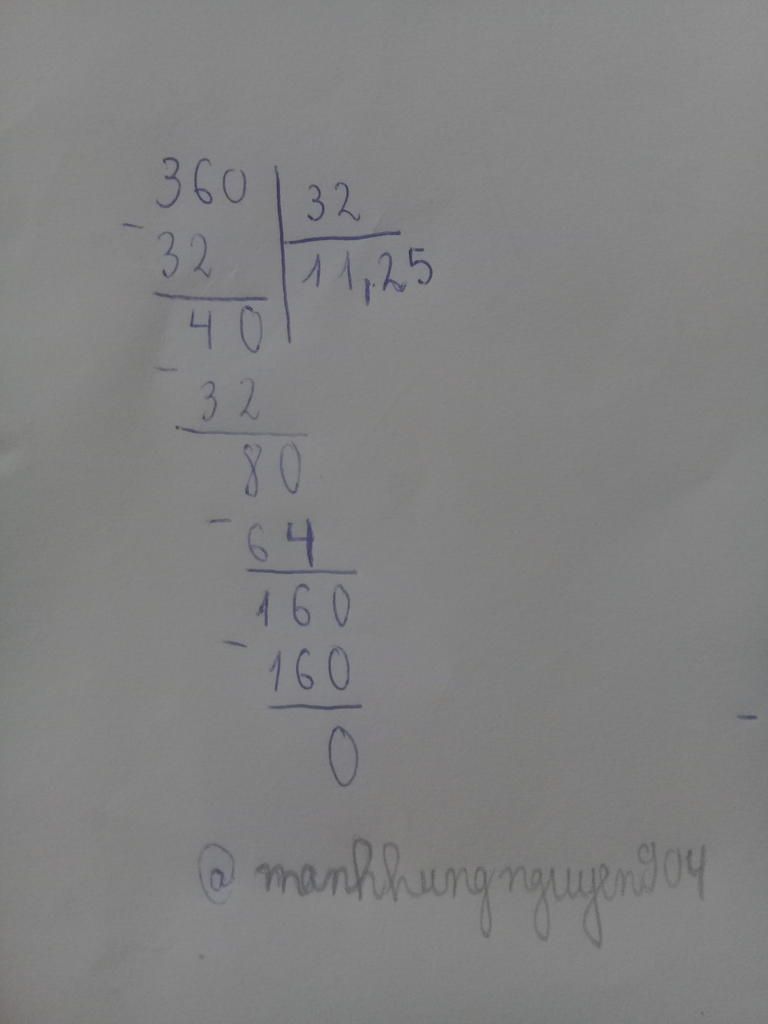 360 | 32
- 32 | 11,25
40
- 32
80
- 64
160
- 160
0
@manhhungnguyen904